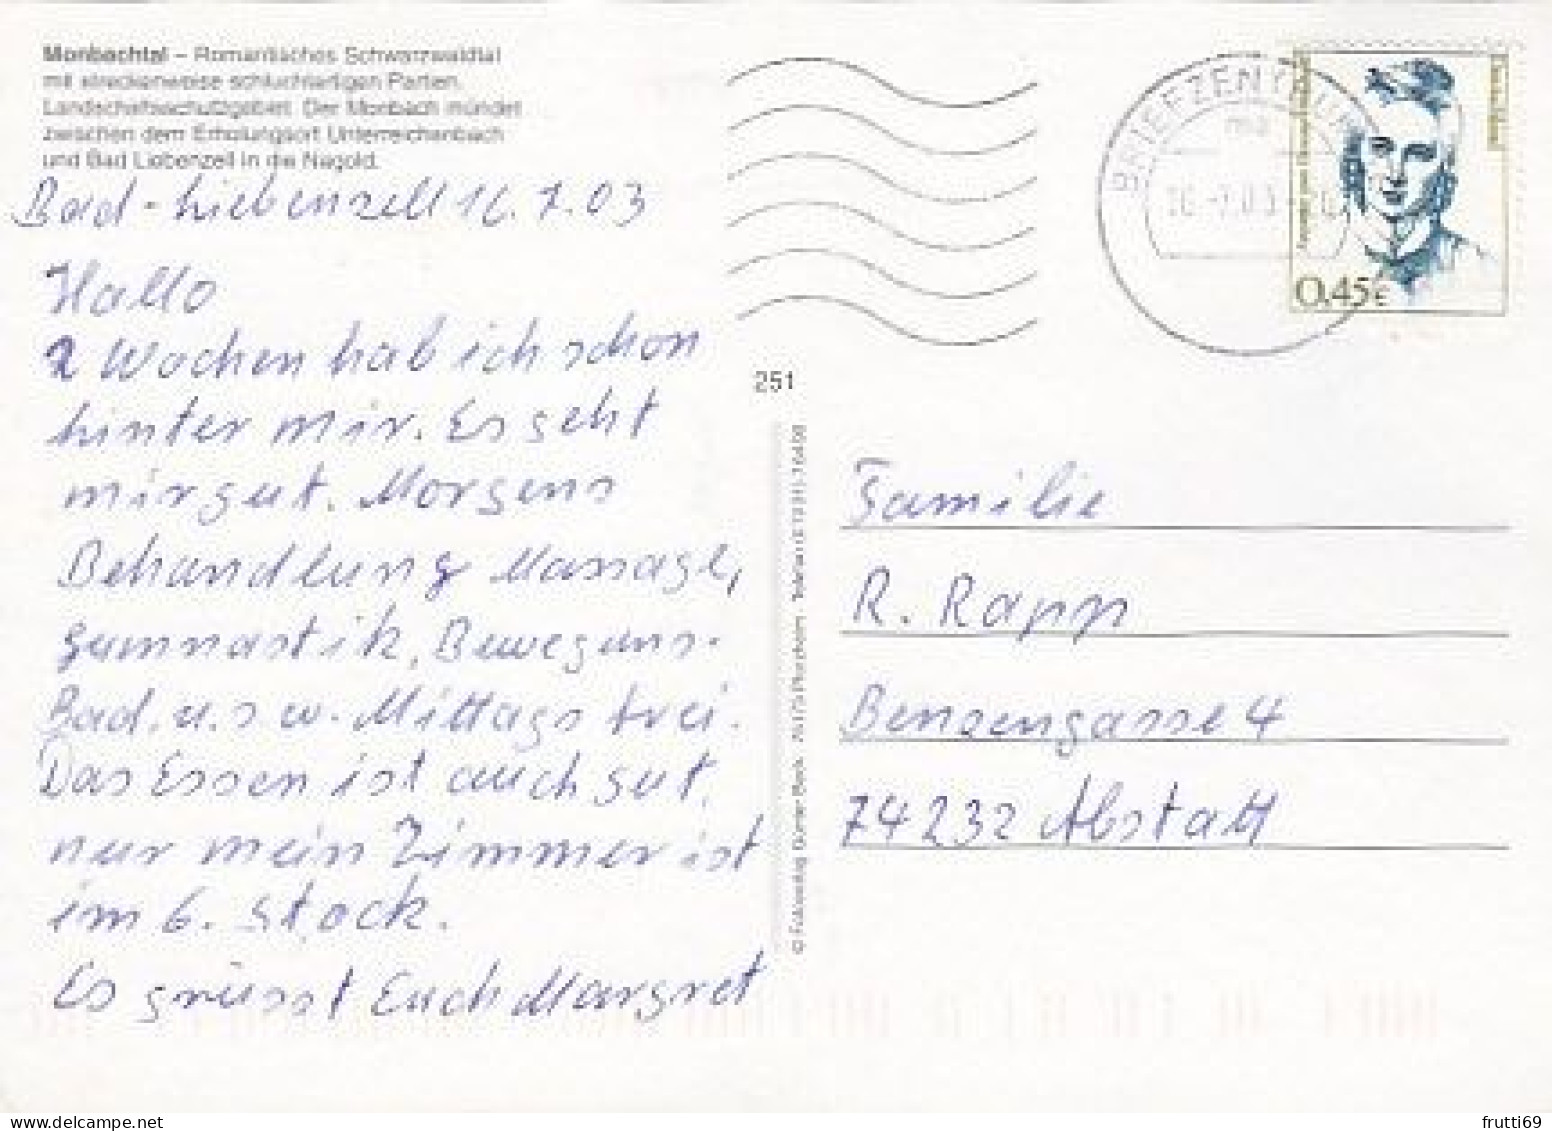 Monbachtal – Romantisches Schwarzwaldtal
mit streckenweise schluchtartigen Partien.
Landschaftsschutzgebiet. Der Monbach mündet
zwischen dem Erholungsort Unterreichenbach
und Bad Liebenzell in die Nagold.
Bad-Liebenzell 16.7.03
Hallo
2 Wochen hab ich schon
hinter mir. Es geht
mir gut. Morgens
Behandlung Massage,
gymnastik, Beweguns-
Bad. u.s w. Mittags frei.
Das Essen ist auch gut,
nur mein Zimmer ist
im 6. Stock.
Es grüsst Euch Margret
251
BRIEFZENTRUM
0,45€
Familie
R. Rapp
Benzengasse 4
74232 Abstatt
frutti69